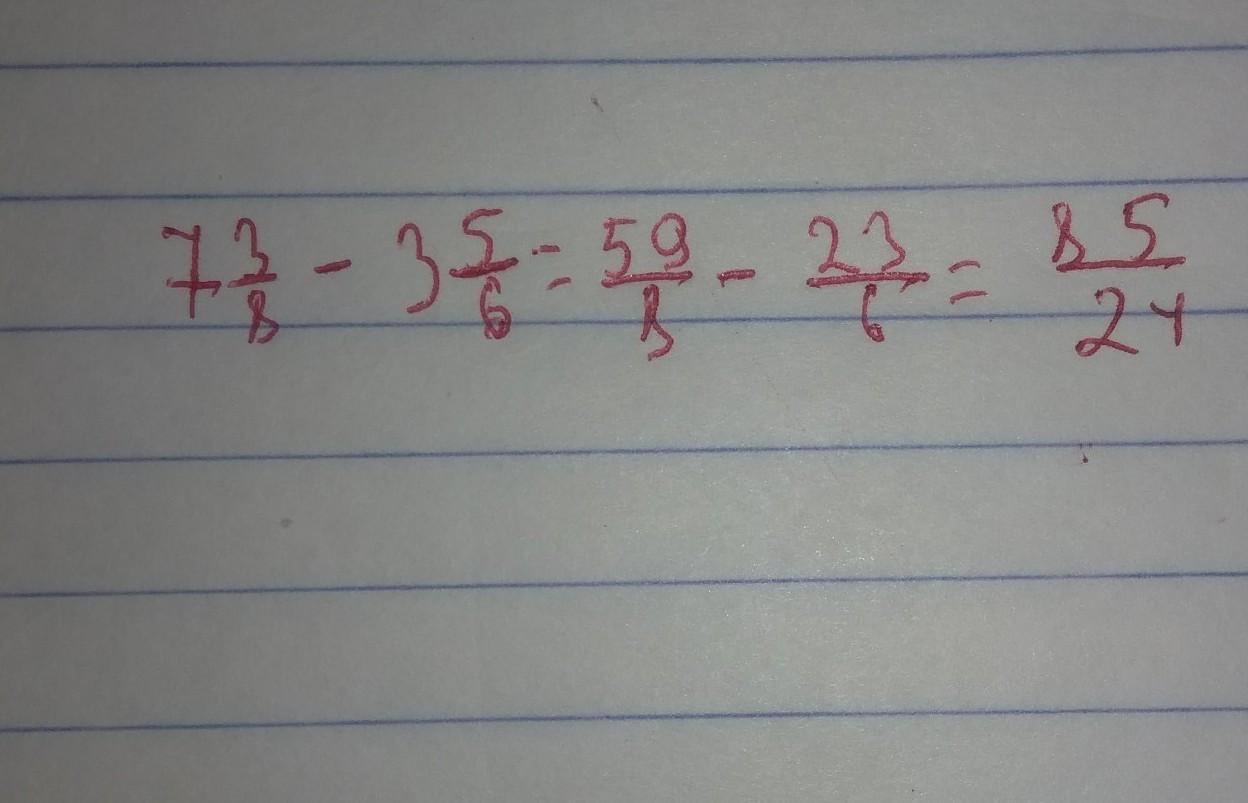 7 3/8 - 3 5/6 = 59/8 - 23/6 = 85/24